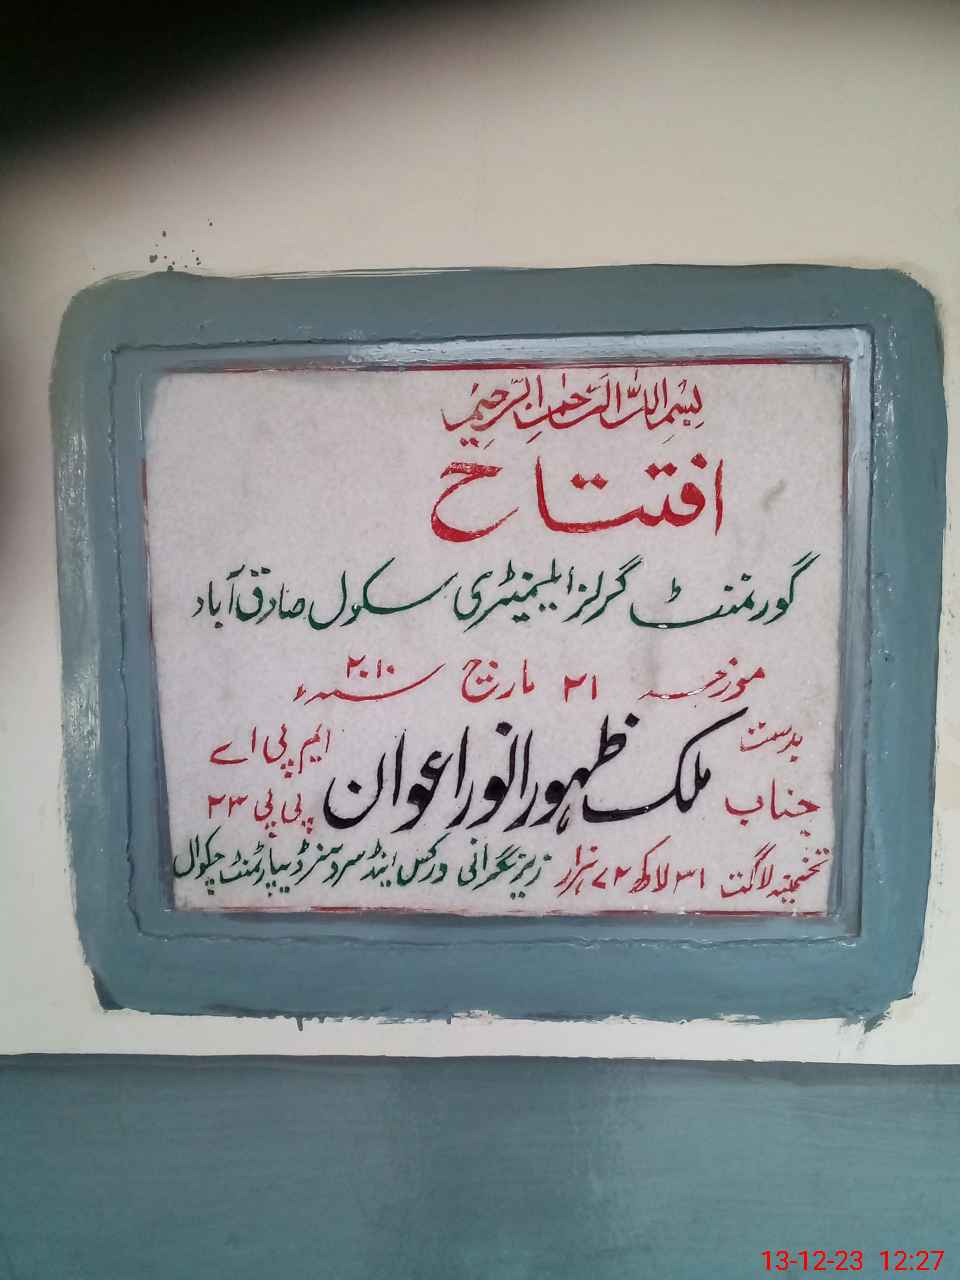 بِسْمِ اللہِ الرَّحْمٰنِ الرَّحِیْمِ
افتتاح
گورنمنٹ گرلز ایلیمنٹری سکول صادق آباد
مورخہ ۲۱ مارچ ۲۰۱۰ء
بدست جناب ملک ظہور انور اعوان ایم پی اے پی پی ۲۳
تخمینہ لاگت ۳۱ لاکھ ۷۲ ہزار زیر نگرانی ورکس اینڈ سروسز ڈیپارٹمنٹ چکوال
13-12-23 12:27